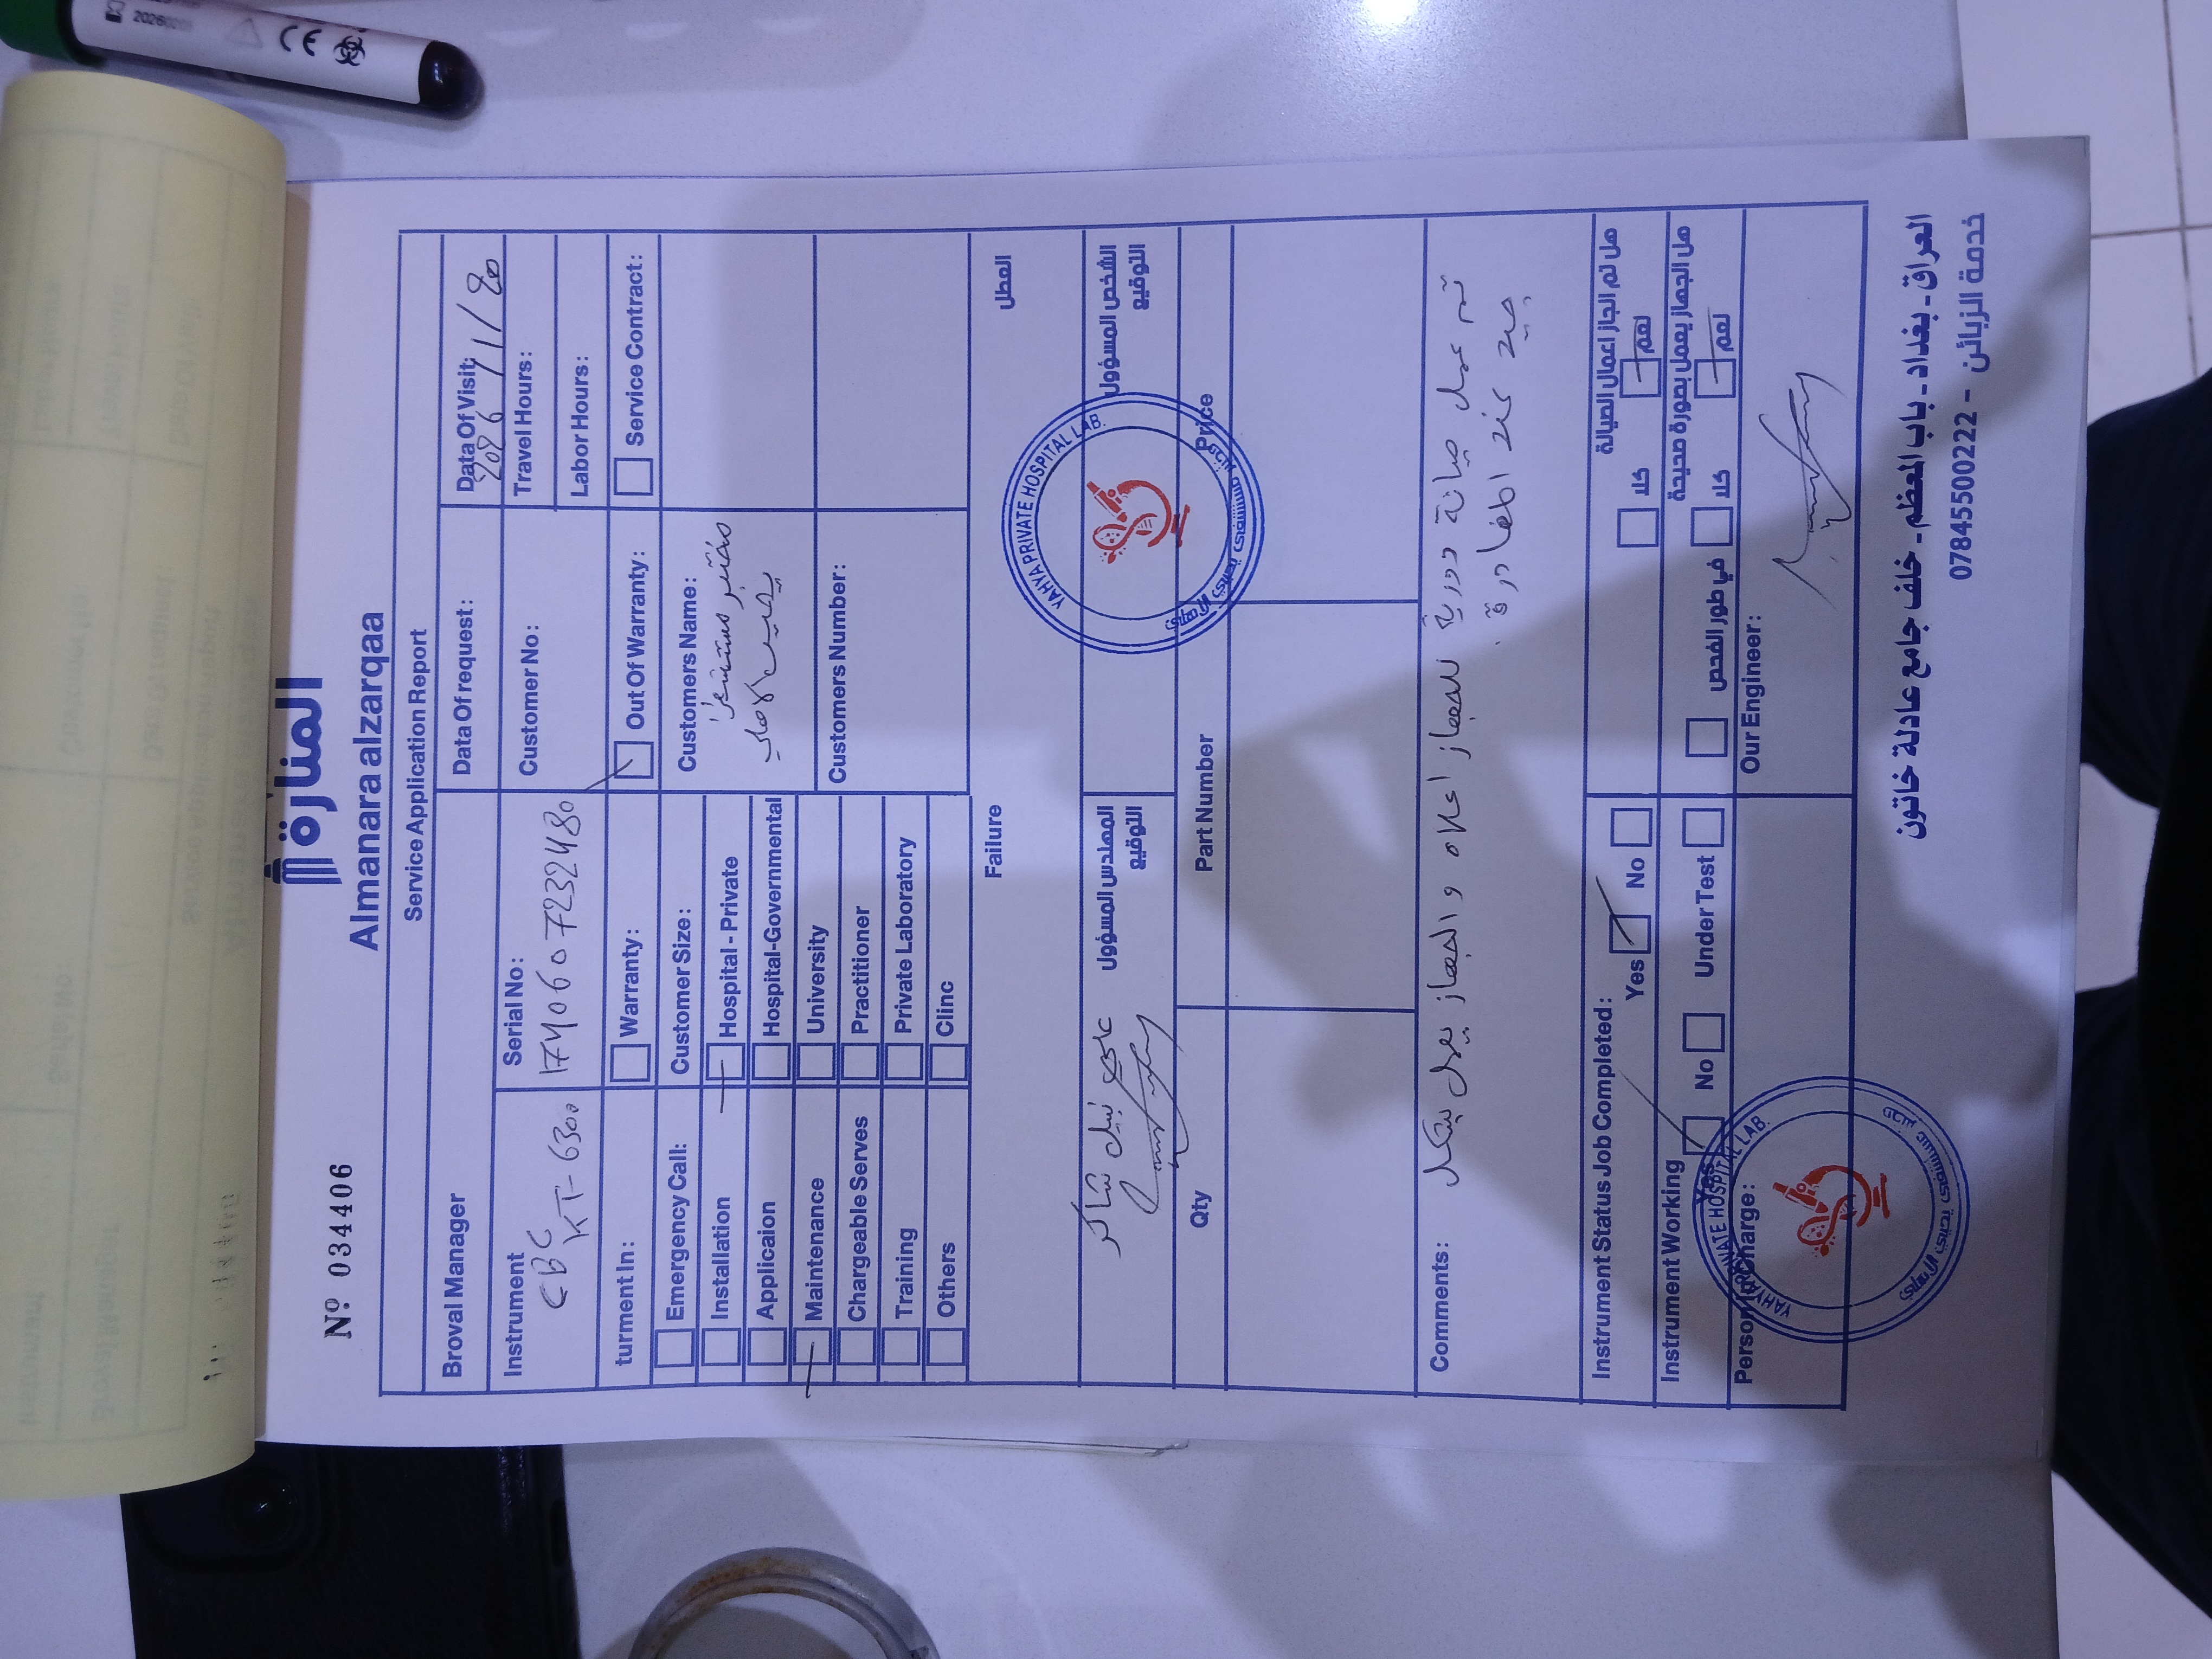 20260201
CE
Nº 034406
المنارة
Almanara alzarqaa
Service Application Report
Broval Manager
Data Of request:
Data Of Visit:
2026/1/20
Instrument
CBC
KT-6300
Serial No:
1740607232480
Customer No:
Travel Hours:
Labor Hours:
turment In:
Warranty:
Out Of Warranty:
Service Contract:
Emergency Call:
Customer Size:
Customers Name:
مختبر مستشفى
يحيى الاهلي
Installation
Hospital - Private
Applicaion
Hospital-Governmental
Maintenance
University
Customers Number:
Chargeable Serves
Practitioner
Training
Private Laboratory
Others
Clinc
Failure
العطل
المهندس المسؤول
التوقيع
نبيل شاكر
الشخص المسؤول
التوقيع
YAHYA PRIVATE HOSPITAL LAB.
Qty
Part Number
Price
Comments:
تم عمل صيانة دورية للجهاز اعلاه والجهاز يعمل بشكل
جيد عند المغادرة.
Instrument Status Job Completed:
Yes
No
هل تم انجاز اعمال الصيانة
كلا
نعم
Instrument Working
Yes
No
Under Test
هل الجهاز يعمل بصورة صحيحة
في طور الفحص
كلا
نعم
Person In Charge:
Our Engineer:
YAHYA PRIVATE HOSPITAL LAB.
العراق - بغداد - باب المعظم - خلف جامع عادلة خاتون
خدمة الزبائن - 07845500222